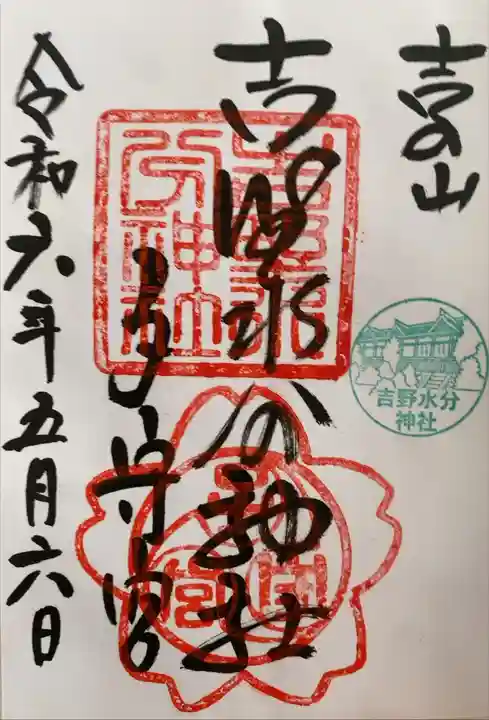 吉の山
吉野水分神社
子守宮
令和六年五月六日
吉野水分
神社
吉野水分神社
子守宮